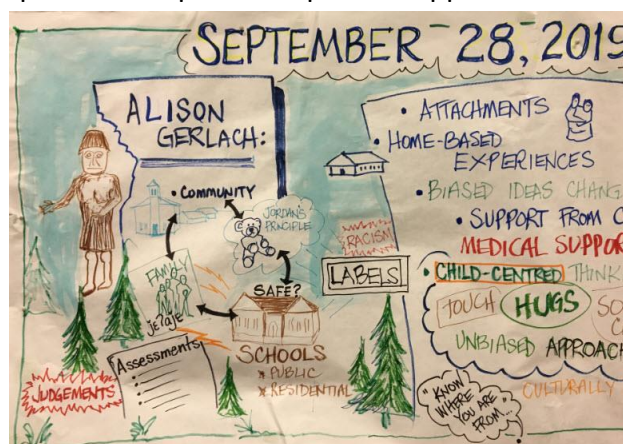 SEPTEMBER 28, 2019
ALISON
GERLACH:
• COMMUNITY
JORDAN'S
PRINCIPLE
RACISM
LABELS
FAMILY
SAFE?
SCHOOLS
* PUBLIC
* RESIDENTIAL
Assessments
JUDGEMENTS
• ATTACHMENTS
• HOME-BASED
EXPERIENCES
• BIASED IDEAS CHANG
• SUPPORT FROM C
MEDICAL SUPPOR
• CHILD-CENTRED THINK
TOUCH HUGS SO
UNBIASED APPROACH
CULTURALLY
"KNOW
WHERE
YOU ARE
FROM..."